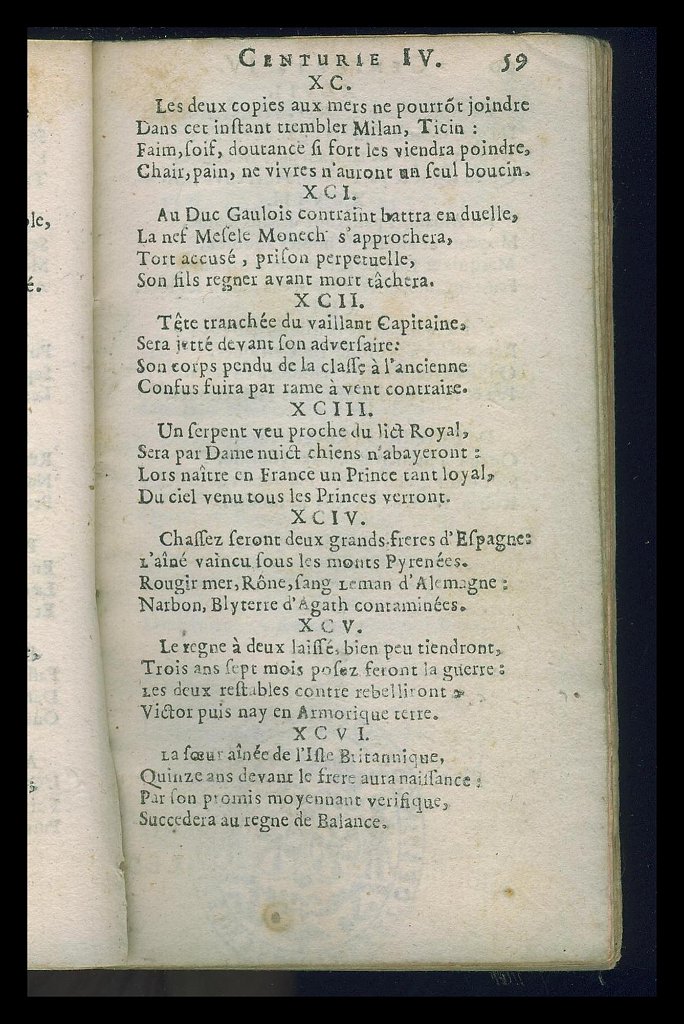 ble,
é.
CENTURIE IV. 59
XC.
Les deux copies aux mers ne pourrõt joindre
Dans cet inſtant trembler Milan, Ticin :
Faim, ſoif, doutance ſi fort les viendra poindre,
Chair, pain, ne vivres n'auront un ſeul boucin.
XCI.
Au Duc Gaulois contraint battra en duelle,
La nef Meſele Monech s'approchera,
Tort accusé, priſon perpetuelle,
Son fils regner avant mort tâchera.
XCII.
Tête tranchée du vaillant Capitaine,
Sera jetté devant ſon adverſaire:
Son corps pendu de la claſſe à l'ancienne
Confus fuira par rame à vent contraire.
XCIII.
Un ſerpent veu proche du lict Royal,
Sera par Dame nuict chiens n'abayeront :
Lors naître en France un Prince tant loyal,
Du ciel venu tous les Princes verront.
XCIV.
Chaſſez ſeront deux grands freres d'Eſpagne:
L'aîné vaincu ſous les monts Pyrenées.
Rougir mer, Rône, ſang Leman d'Alemagne :
Narbon, Blyterre d'Agath contaminées.
XCV.
Le regne à deux laiſſé, bien peu tiendront,
Trois ans ſept mois poſez feront la guerre :
Les deux reſtables contre rebelliront
Victor puis nay en Armorique terre.
XCVI.
La ſœur aînée de l'Iſle Britannique,
Quinze ans devant le frere aura naiſſance :
Par ſon promis moyennant verifique,
Succedera au regne de Balance.